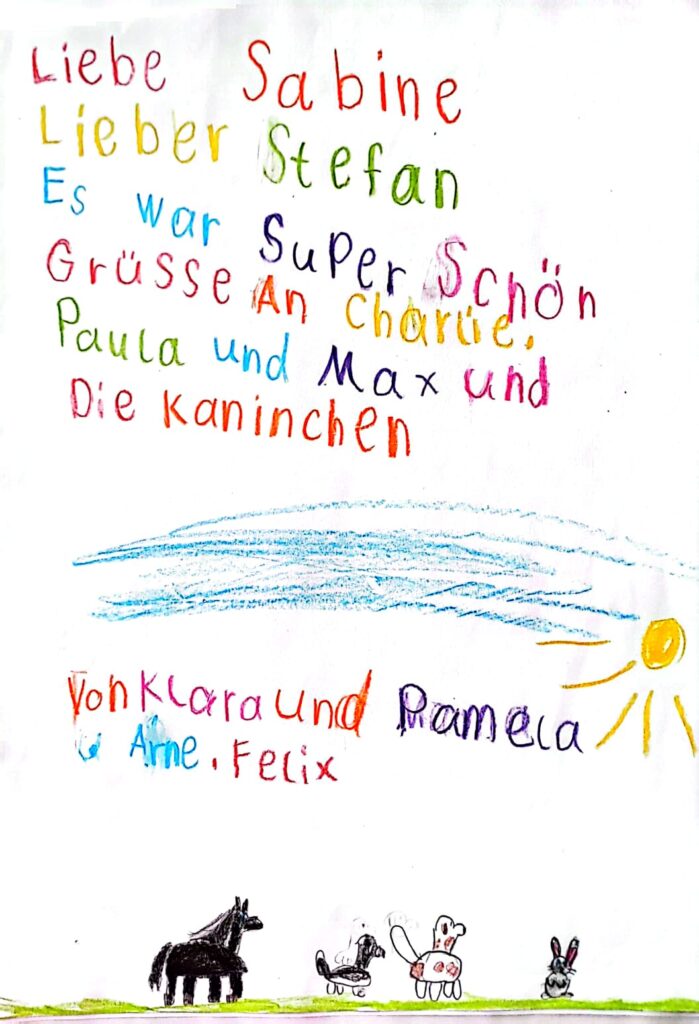 Liebe Sabine
Lieber Stefan
Es war Super Schön
Grüsse An Charlie,
Paula und Max und
Die Kaninchen
Von Klara und Pamela
u Arne, Felix